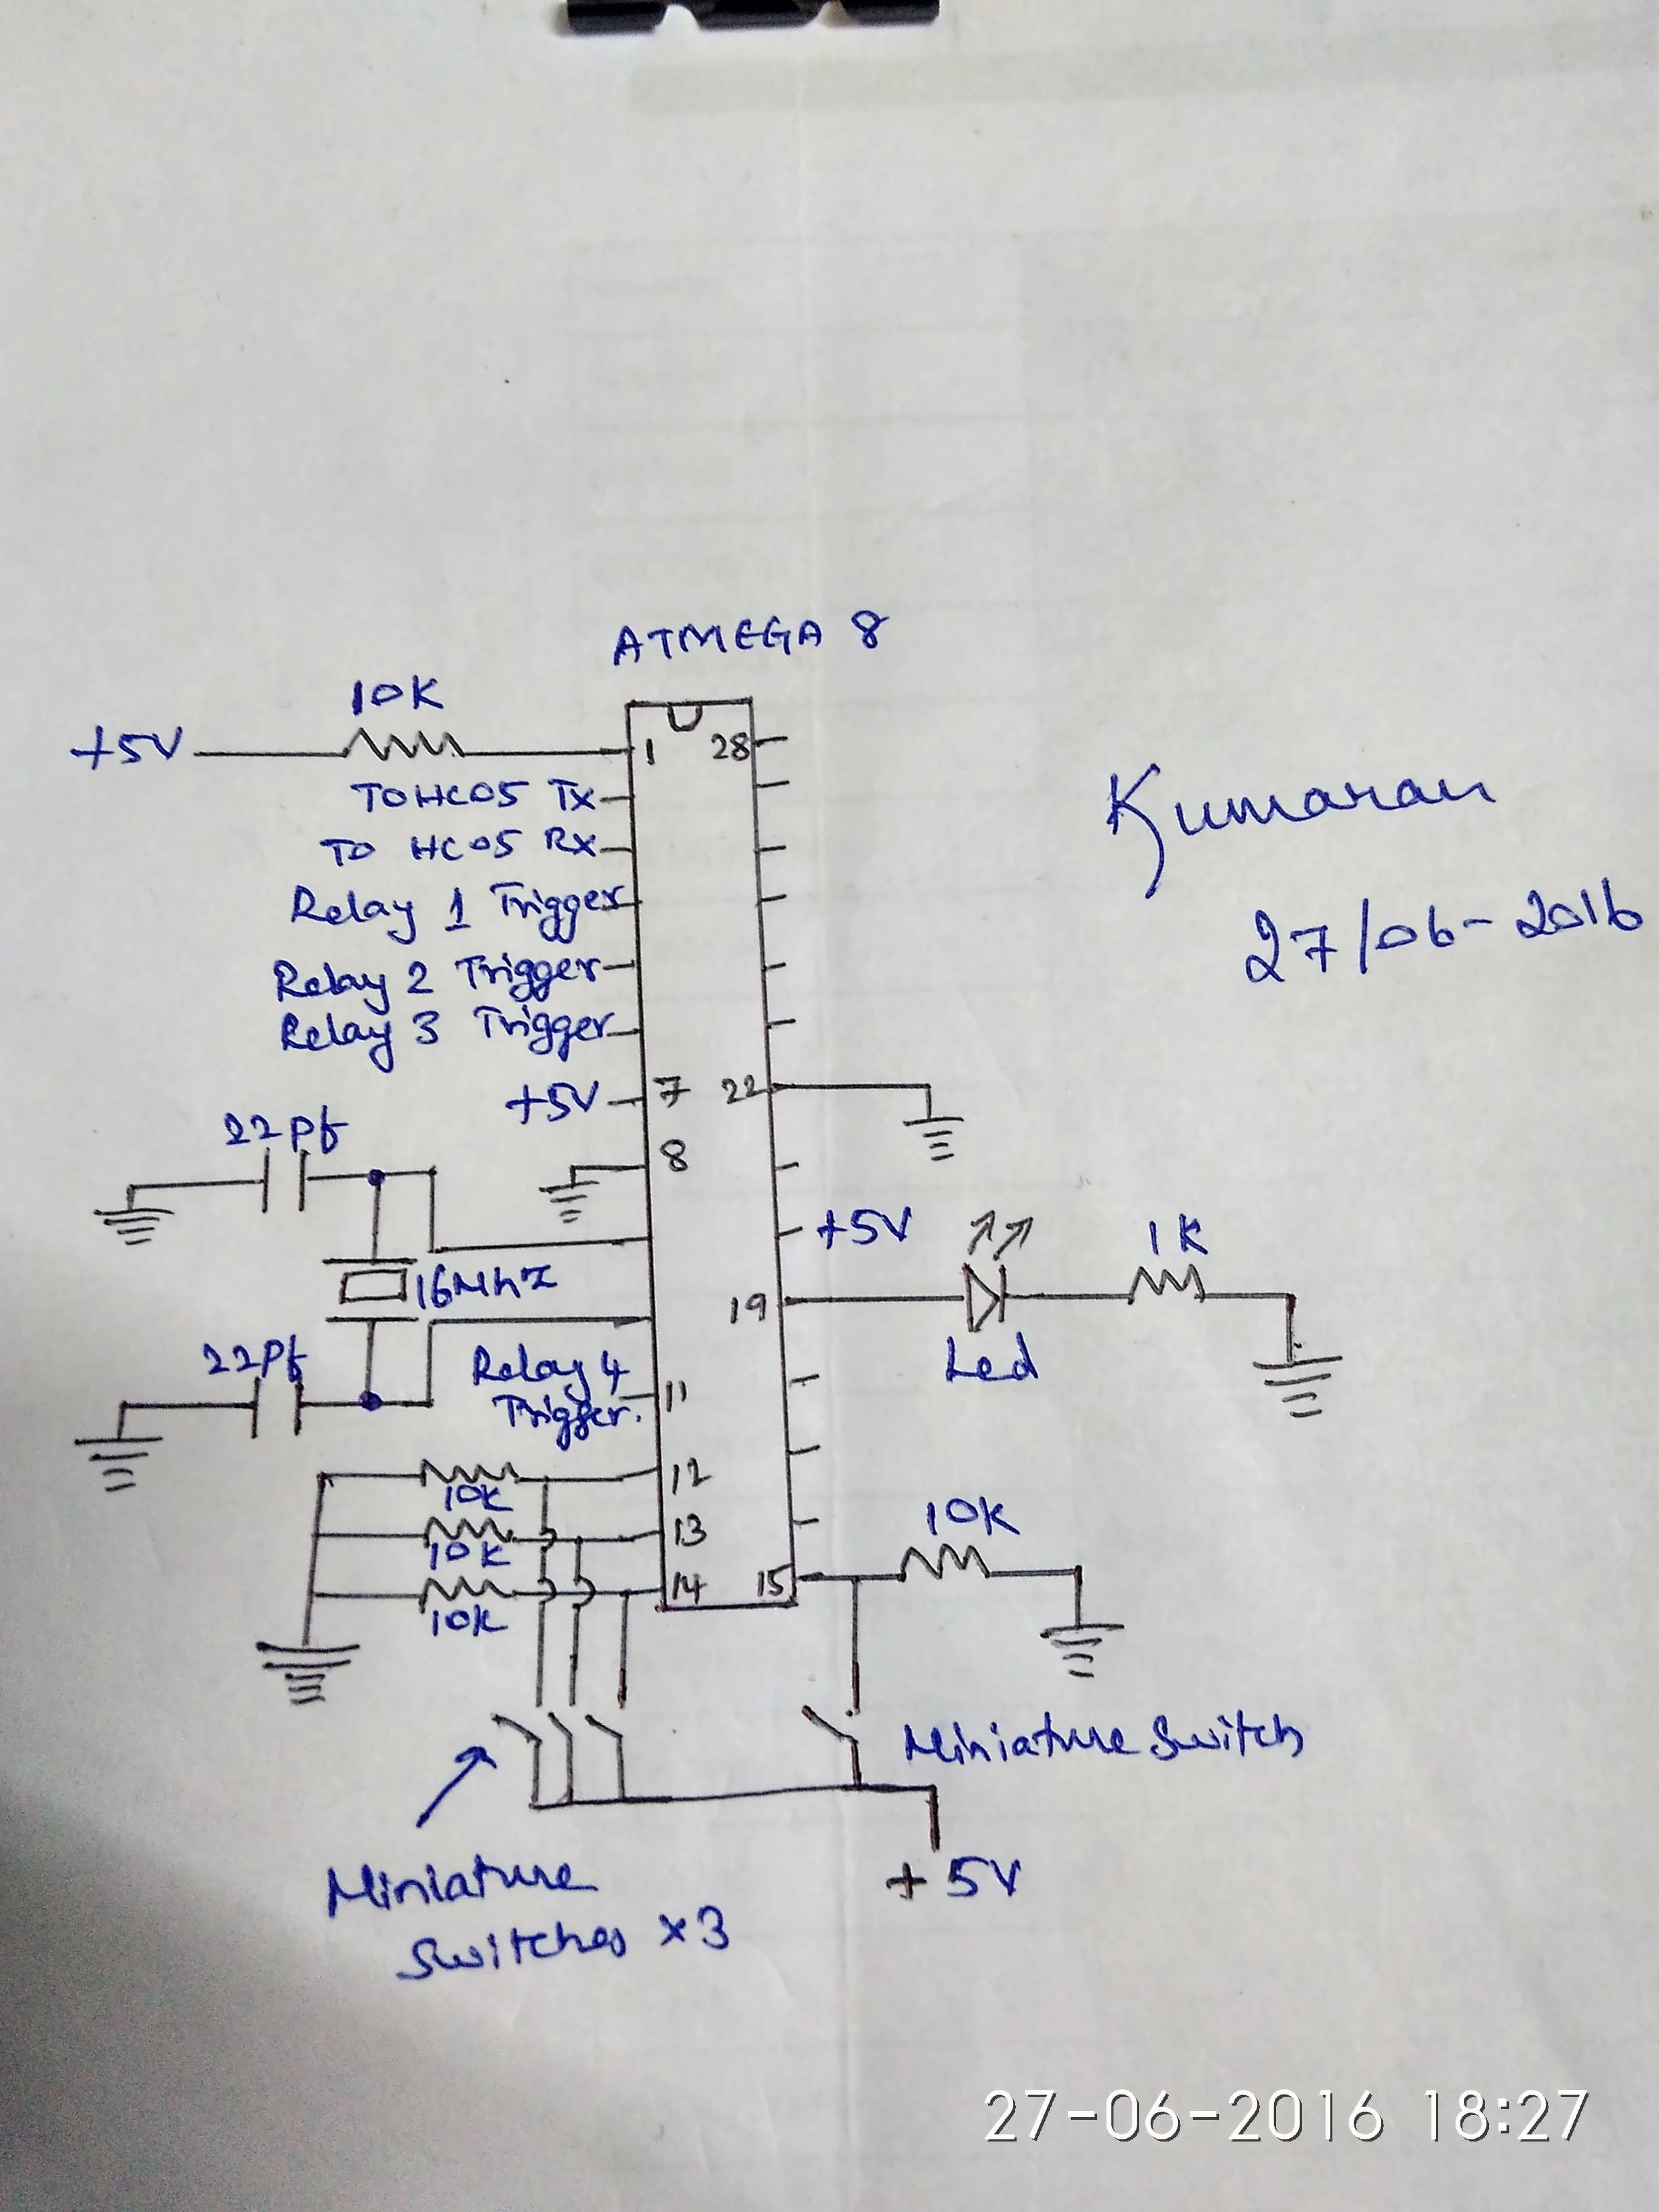 ATMEGA 8
10K
+5V
1 28
TO HC05 Tx
TO HC05 Rx
Relay 1 Trigger
Relay 2 Trigger
Relay 3 Trigger
+5V 7 22
Kumaran
27/06-2016
22pf
8
+5V
1K
16Mhz
19
Led
22Pf
Relay 4
Trigger.
11
12
10K
13
10K
14 15
10K
10K
Miniature Switch
Miniature
Switches x3
+5V
27-06-2016 18:27